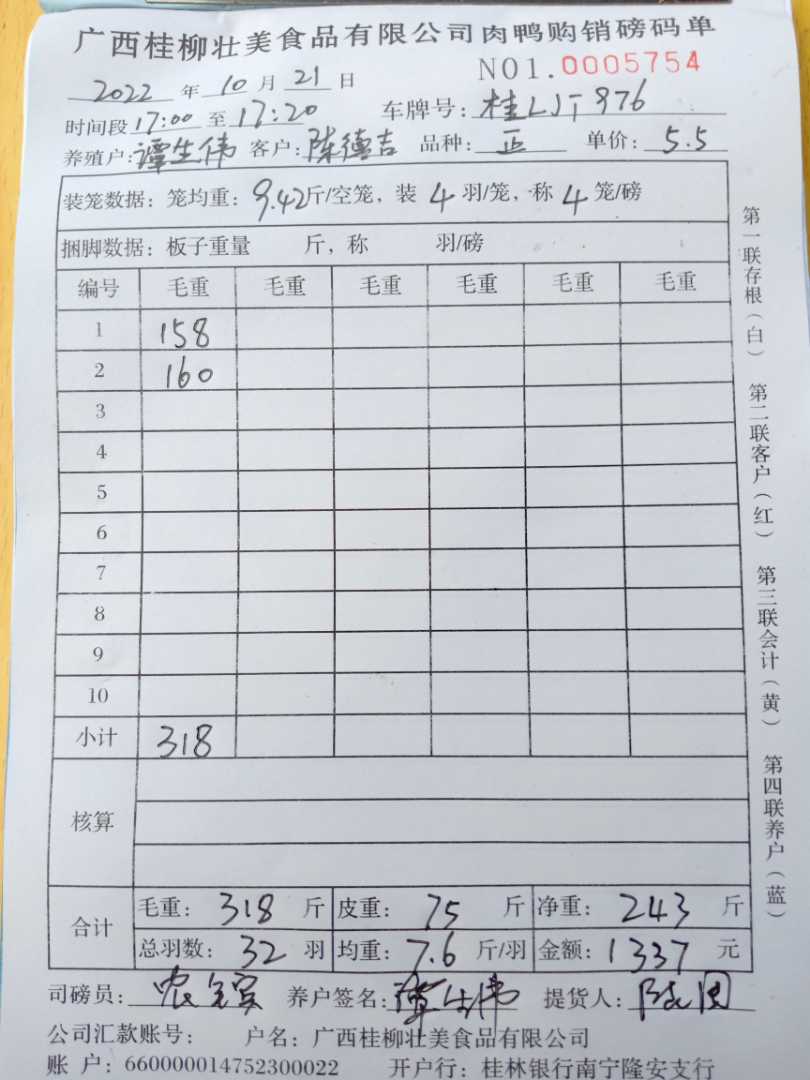 广西桂柳壮美食品有限公司肉鸭购销磅码单
2022 年 10 月 21 日 NO1.0005754
时间段 17:00 至 17:20 车牌号: 桂LJT976
养殖户: 谭生伟 客户: 陈德吉 品种: 正 单价: 5.5
装笼数据: 笼均重: 9.42斤/空笼, 装 4 羽/笼, 称 4 笼/磅
捆脚数据: 板子重量 斤, 称 羽/磅
编号 毛重 毛重 毛重 毛重 毛重 毛重
1 158
2 160
3
4
5
6
7
8
9
10
小计 318
核算
合计 毛重: 318 斤 皮重: 75 斤 净重: 243 斤
总羽数: 32 羽 均重: 7.6 斤/羽 金额: 1337 元
司磅员: 养户签名: 谭生伟 提货人:
公司汇款账号: 户名: 广西桂柳壮美食品有限公司
账 户: 660000014752300022 开户行: 桂林银行南宁隆安支行
第一联存根(白) 第二联客户(红) 第三联会计(黄) 第四联养户(蓝)